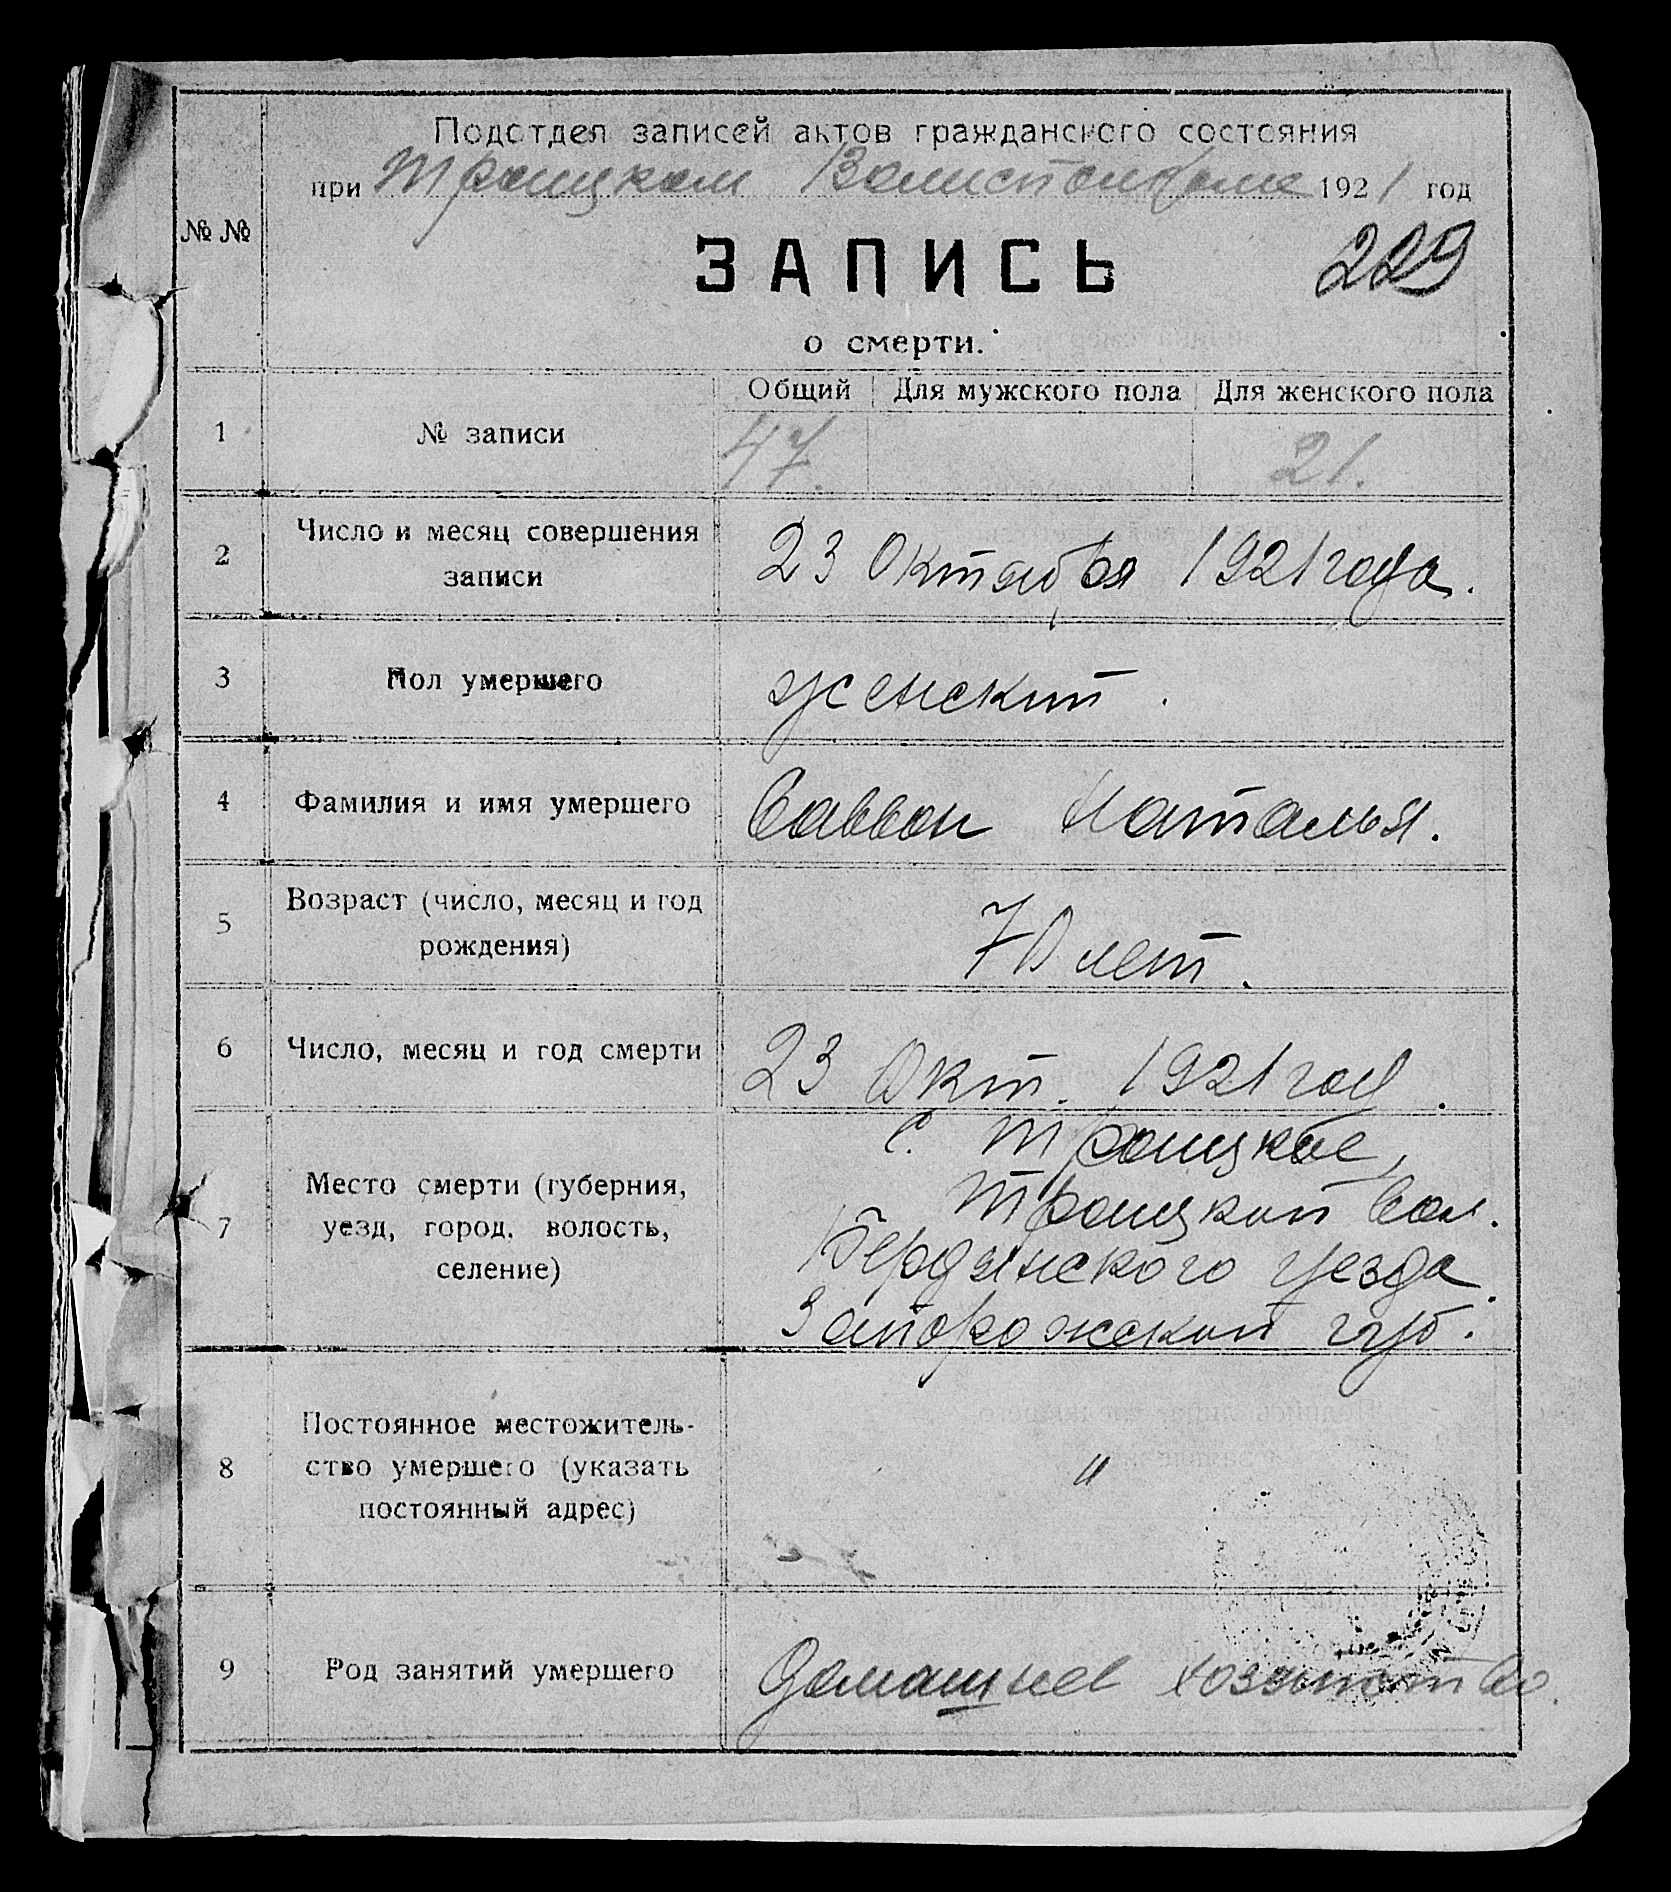 Подотдел записей актов гражданского состояния
при Троицком 1921 год
№ №
ЗАПИСЬ
229
о смерти.
Общий Для мужского пола Для женского пола
1 № записи 47. 21.
2 Число и месяц совершения записи
23 Октября 1921 года.
3 Пол умершего
женский.
4 Фамилия и имя умершего
Саввон Наталья.
5 Возраст (число, месяц и год рождения)
70 лет.
6 Число, месяц и год смерти
23 Окт. 1921 год.
7 Место смерти (губерния, уезд, город, волость, селение)
с. Троицкое,
Троицкой вол.
Бердянского уезда.
Запорожской губ.
8 Постоянное местожительство умершего (указать постоянный адрес)
"
9 Род занятий умершего
Домашнее хозяйство.